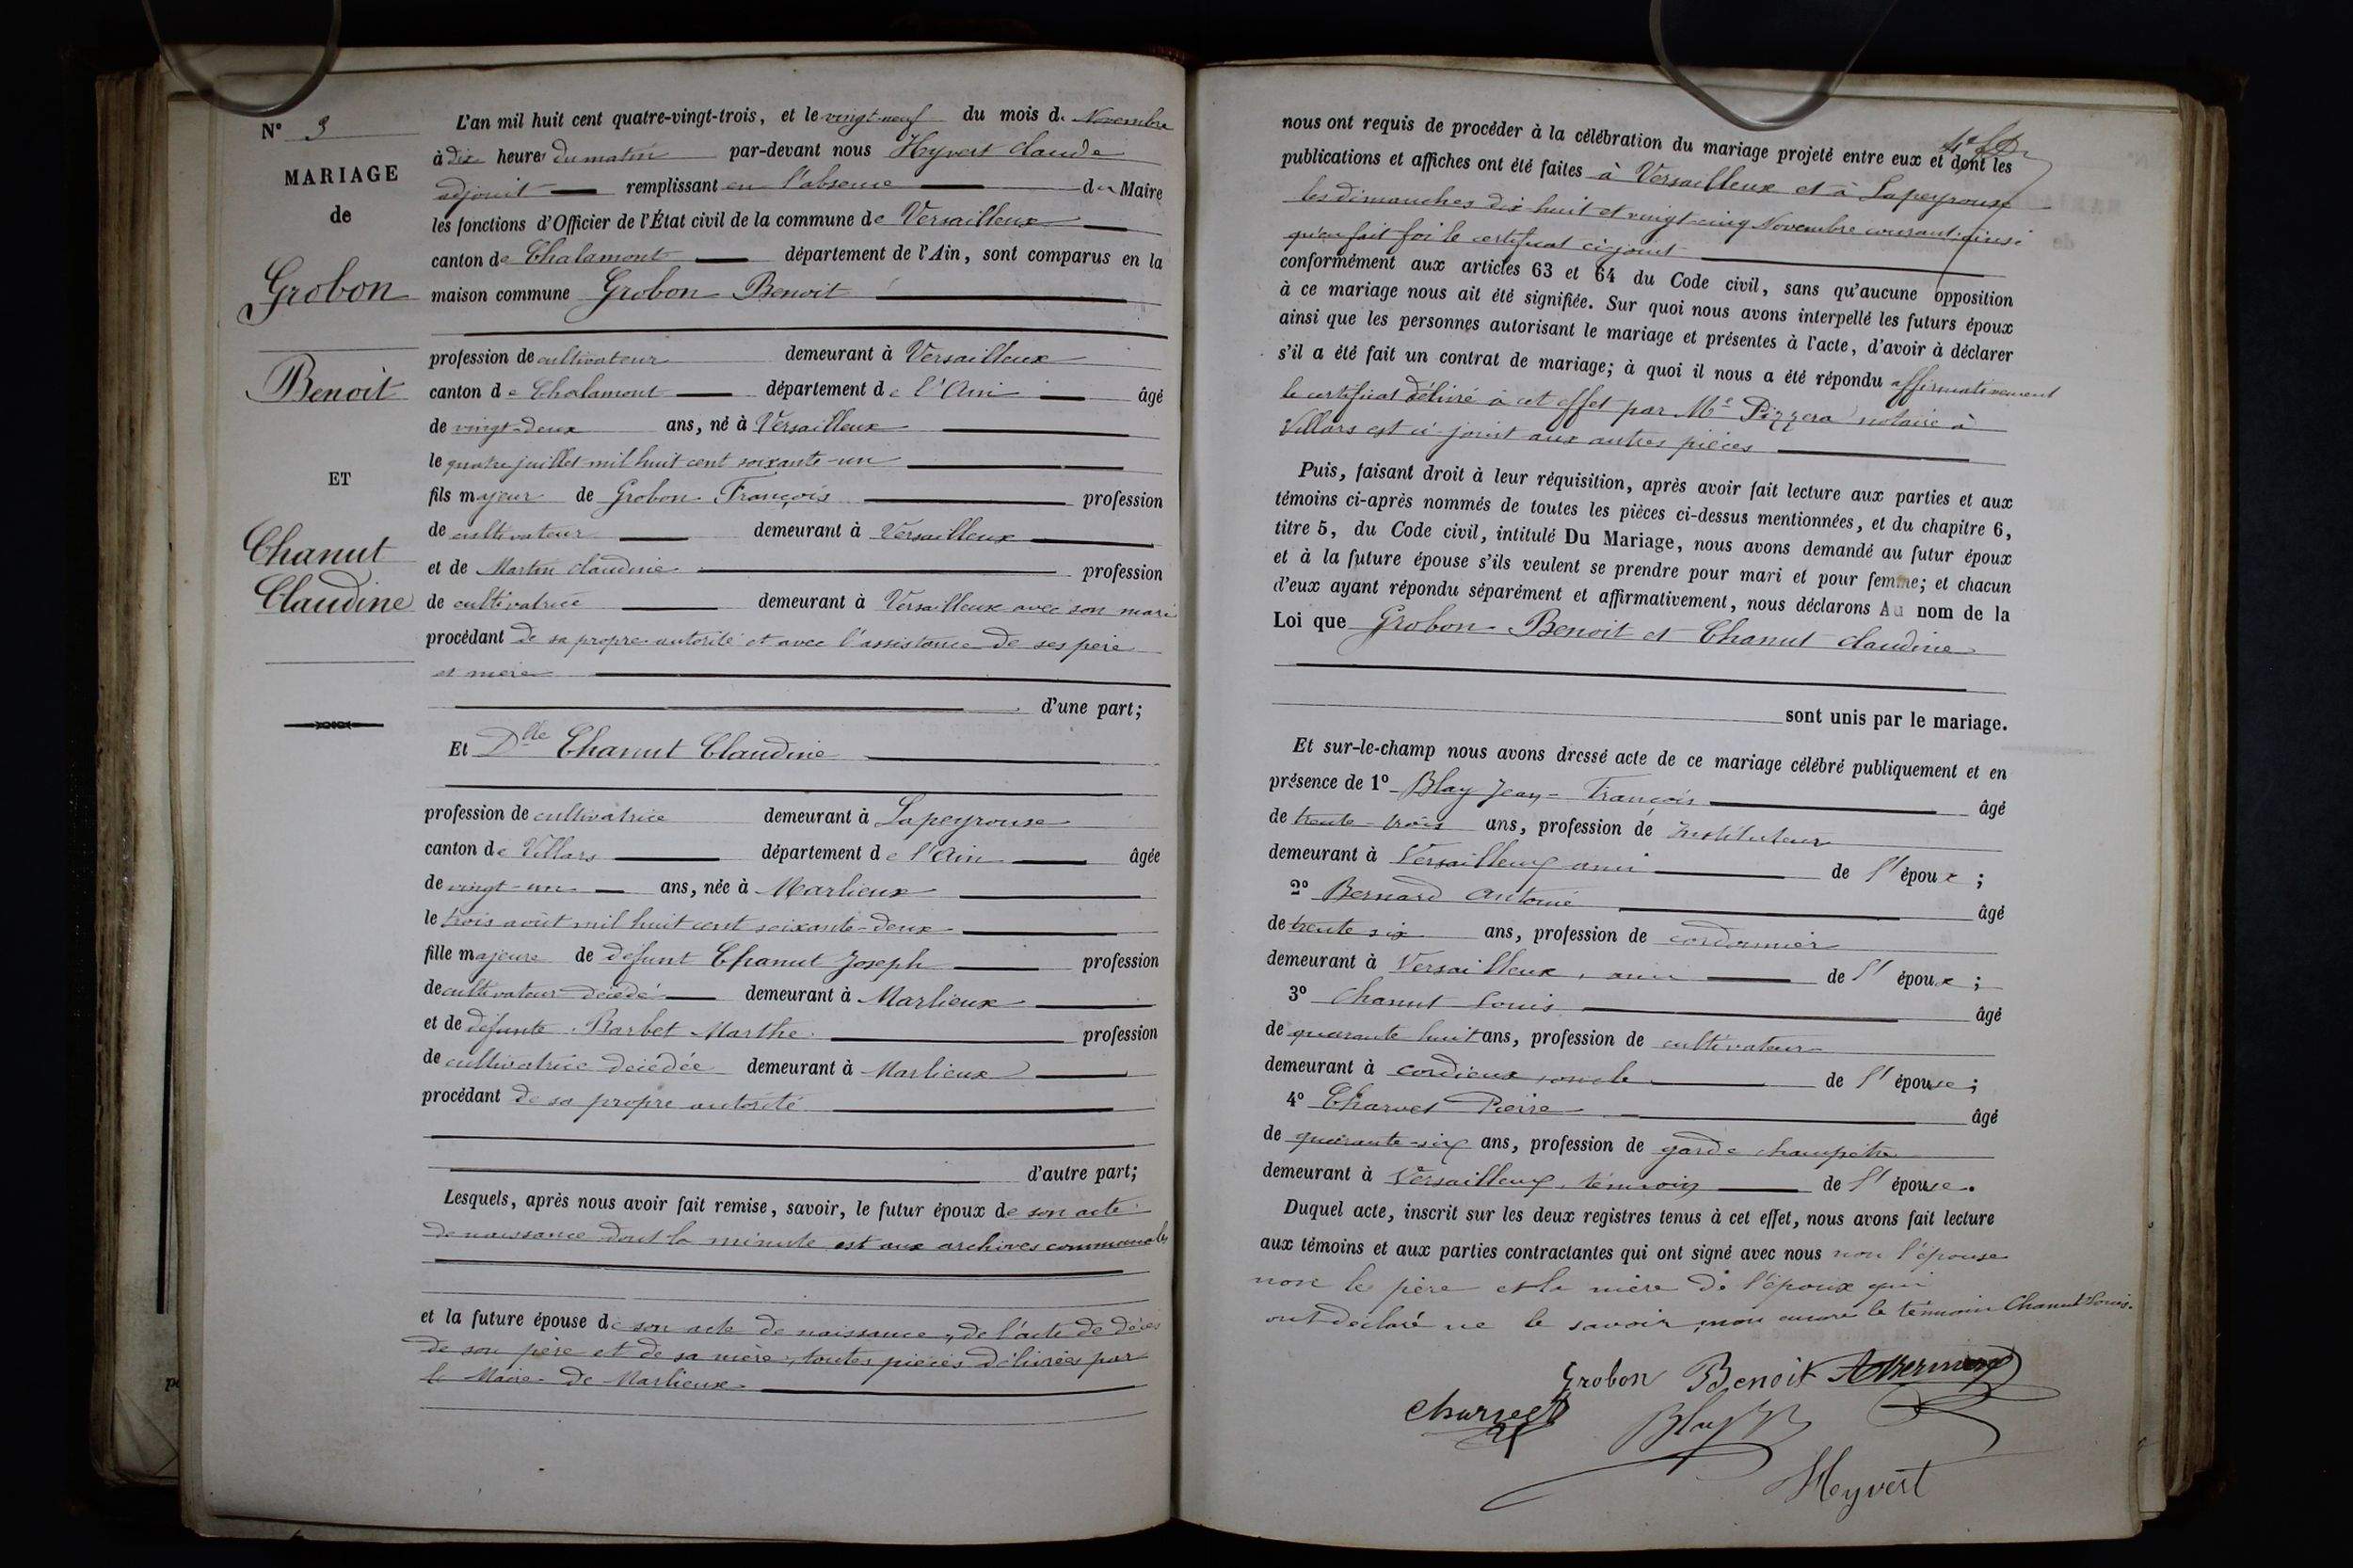 N° 3
MARIAGE
de
Grobon
Benoit
ET
Chanut
Claudine
L'an mil huit cent quatre-vingt-trois, et le vingt-neuf du mois de Novembre
à dix heures du matin par-devant nous Heyvert Claude
adjoint remplissant en l'absence du Maire
les fonctions d'Officier de l'État civil de la commune de Versailleux
canton de Chalamont département de l'Ain, sont comparus en la
maison commune Grobon Benoit
profession de cultivateur demeurant à Versailleux
canton de Chalamont département de l'Ain âgé
de vingt-deux ans, né à Versailleux
le quatre juillet mil huit cent soixante-un
fils majeur de Grobon François profession
de cultivateur demeurant à Versailleux
et de Martin Claudine profession
de cultivatrice demeurant à Versailleux avec son mari
procédant de sa propre autorité et avec l'assistance de ses père
et mère
d'une part;
Et Dlle Chanut Claudine
profession de cultivatrice demeurant à Lapeyrouse
canton de Villars département de l'Ain âgée
de vingt-un ans, née à Marlieux
le trois août mil huit cent soixante-deux
fille majeure de défunt Chanut Joseph profession
de cultivateur décédé demeurant à Marlieux
et de défunte Barbet Marthe profession
de cultivatrice décédée demeurant à Marlieux
procédant de sa propre autorité
d'autre part;
Lesquels, après nous avoir fait remise, savoir, le futur époux de son acte
de naissance dont la minute est aux archives communales
et la future épouse de son acte de naissance, de l'acte de décès
de son père et de sa mère, toutes pièces délivrées par
le Maire de Marlieux
nous ont requis de procéder à la célébration du mariage projeté entre eux et dont les
publications et affiches ont été faites à Versailleux et à Lapeyrouse
les dimanches dix huit et vingt-cinq Novembre courant ainsi
qu'en fait foi le certificat ci-joint
conformément aux articles 63 et 64 du Code civil, sans qu'aucune opposition
à ce mariage nous ait été signifiée. Sur quoi nous avons interpellé les futurs époux
ainsi que les personnes autorisant le mariage et présentes à l'acte, d'avoir à déclarer
s'il a été fait un contrat de mariage; à quoi il nous a été répondu affirmativement
le certificat délivré à cet effet par Me Pizzera notaire à
Villars est ci-joint aux autres pièces
Puis, faisant droit à leur réquisition, après avoir fait lecture aux parties et aux
témoins ci-après nommés de toutes les pièces ci-dessus mentionnées, et du chapitre 6,
titre 5, du Code civil, intitulé Du Mariage, nous avons demandé au futur époux
et à la future épouse s'ils veulent se prendre pour mari et pour femme; et chacun
d'eux ayant répondu séparément et affirmativement, nous déclarons Au nom de la
Loi que Grobon Benoit et Chanut Claudine
sont unis par le mariage.
Et sur-le-champ nous avons dressé acte de ce mariage célébré publiquement et en
présence de 1° Blay Jean-François âgé
de trente-trois ans, profession de Instituteur
demeurant à Versailleux ami de l'époux;
2° Bernard Antoine âgé
de trente six ans, profession de cordonnier
demeurant à Versailleux, ami de l'époux;
3° Chanut Louis âgé
de quarante huit ans, profession de cultivateur
demeurant à Cordieux oncle de l'épouse;
4° Charvet Pierre âgé
de quarante-six ans, profession de garde champêtre
demeurant à Versailleux, témoin de l'épouse.
Duquel acte, inscrit sur les deux registres tenus à cet effet, nous avons fait lecture
aux témoins et aux parties contractantes qui ont signé avec nous non l'épouse
non le père et la mère de l'époux qui
ont déclaré ne le savoir, non encore le témoin Chanut Louis.
Grobon Benoit
Charvet Blay
Heyvert